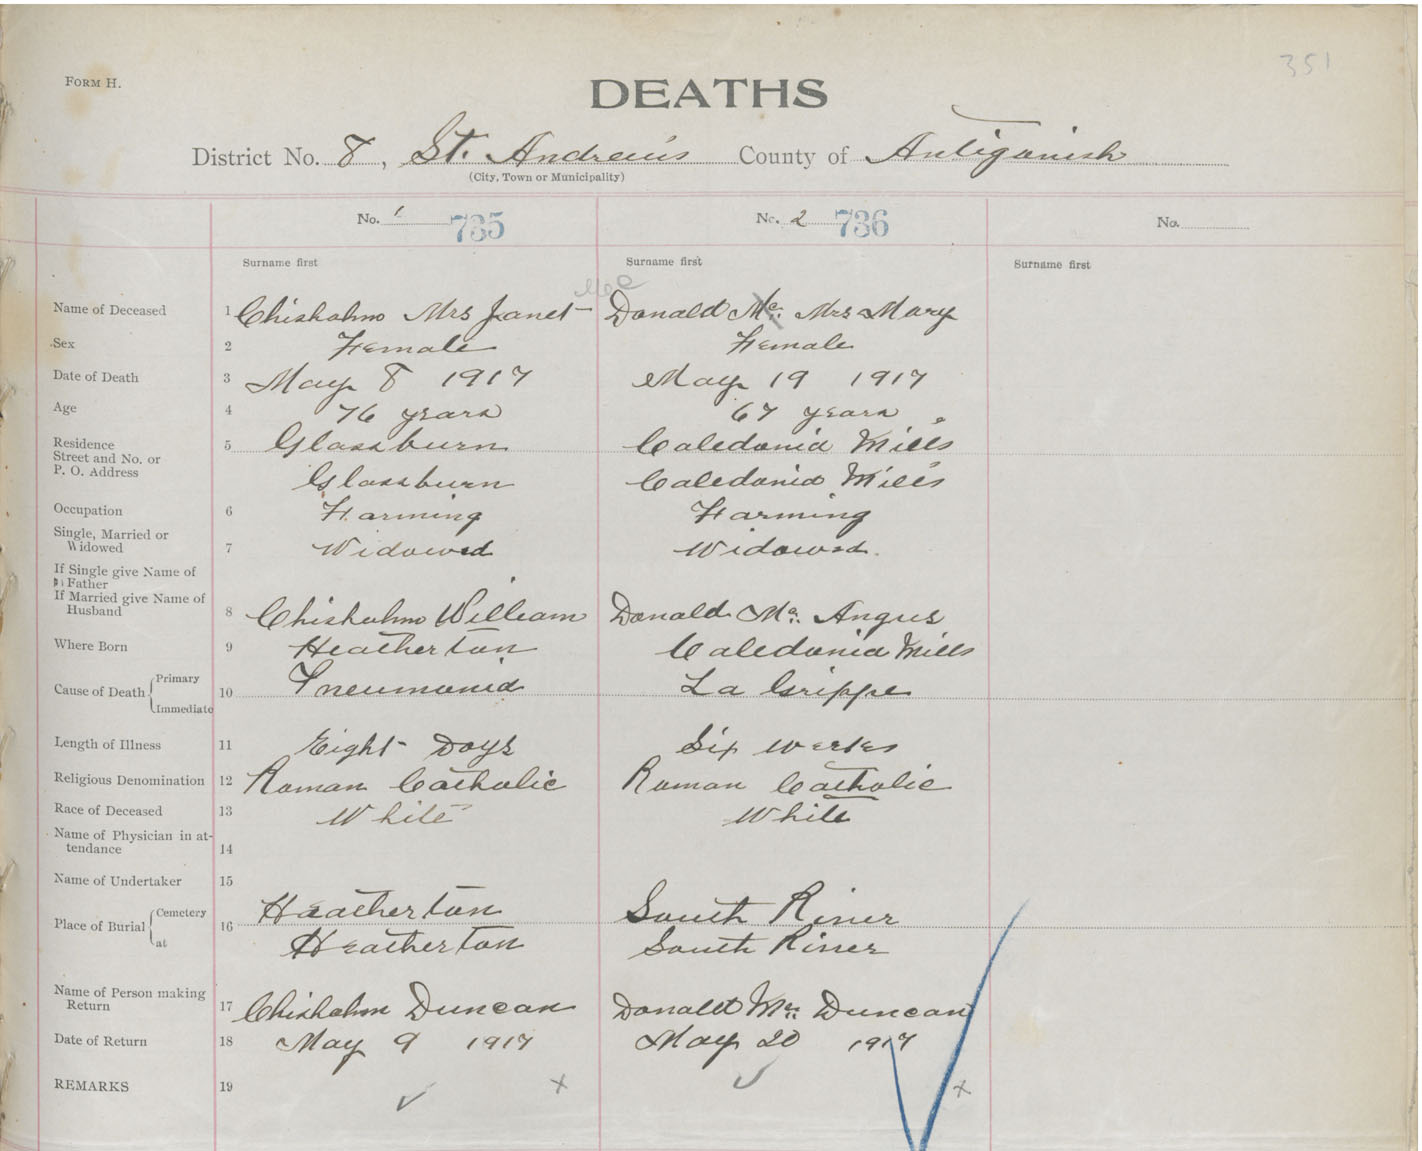 351
FORM H.
DEATHS
District No. 8, St. Andrews County of Antigonish
(City, Town or Municipality)
No. 1 735 No. 2 736 No.
Surname first Surname first Surname first
Mac
Name of Deceased 1 Chisholm Mrs Janet Donald Mc. Mrs Mary
Sex 2 Female Female
Date of Death 3 May 8 1917 May 19 1917
Age 4 76 years 67 years
Residence 5 Glassburn Caledonia Mills
Street and No. or
P. O. Address Glassburn Caledonia Mills
Occupation 6 Farming Farming
Single, Married or
Widowed 7 Widowed Widowed.
If Single give Name of
Father
If Married give Name of
Husband 8 Chisholm William Donald Mc. Angus
Where Born 9 Heatherton Caledonia Mills
Cause of Death Primary 10 Pneumonia La Grippe
Immediate
Length of Illness 11 Eight Days Six weekes
Religious Denomination 12 Roman Catholic Roman Catholic
Race of Deceased 13 White White
Name of Physician in at-
tendance 14
Name of Undertaker 15
Place of Burial Cemetery 16 Heatherton South River
at Heatherton South River
Name of Person making
Return 17 Chisholm Duncan Donald Mc. Duncan
Date of Return 18 May 9 1917 May 20 1917
REMARKS 19